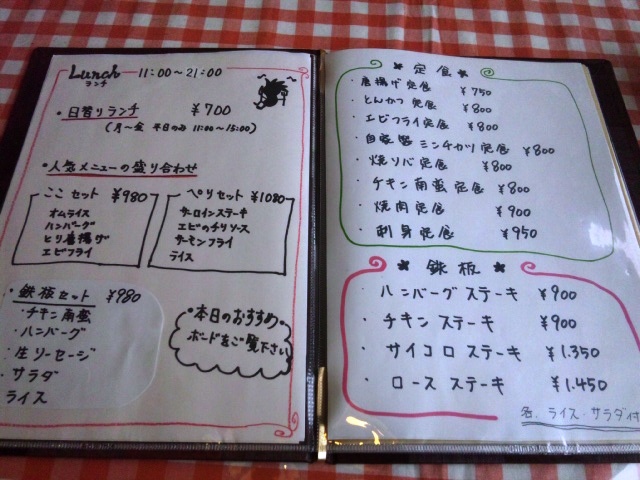 Lunch 11:00～21:00
ランチ
・日替りランチ ¥700
(月～金 平日のみ 11:00～15:00)
・人気メニューの盛り合わせ
ここ セット ¥980
オムライス
ハンバーグ
とり唐揚げ
エビフライ
ぺりセット ¥1080
サーロインステーキ
エビのチリソース
サーモンフライ
ライス
・鉄板セット ¥980
・チキン南蛮
・ハンバーグ
・生ソーセージ
・サラダ
ライス
・本日のおすすめ・
ボードをご覧下さい
＊定食＊
・唐揚げ定食 ¥750
・とんかつ定食 ¥800
・エビフライ定食 ¥800
・自家製ミンチカツ定食 ¥800
・焼ソバ定食 ¥800
・チキン南蛮定食 ¥800
・焼肉定食 ¥900
・刺身定食 ¥950
＊鉄板＊
・ハンバーグステーキ ¥900
・チキンステーキ ¥900
・サイコロステーキ ¥1.350
・ロースステーキ ¥1.450
各、ライス・サラダ付